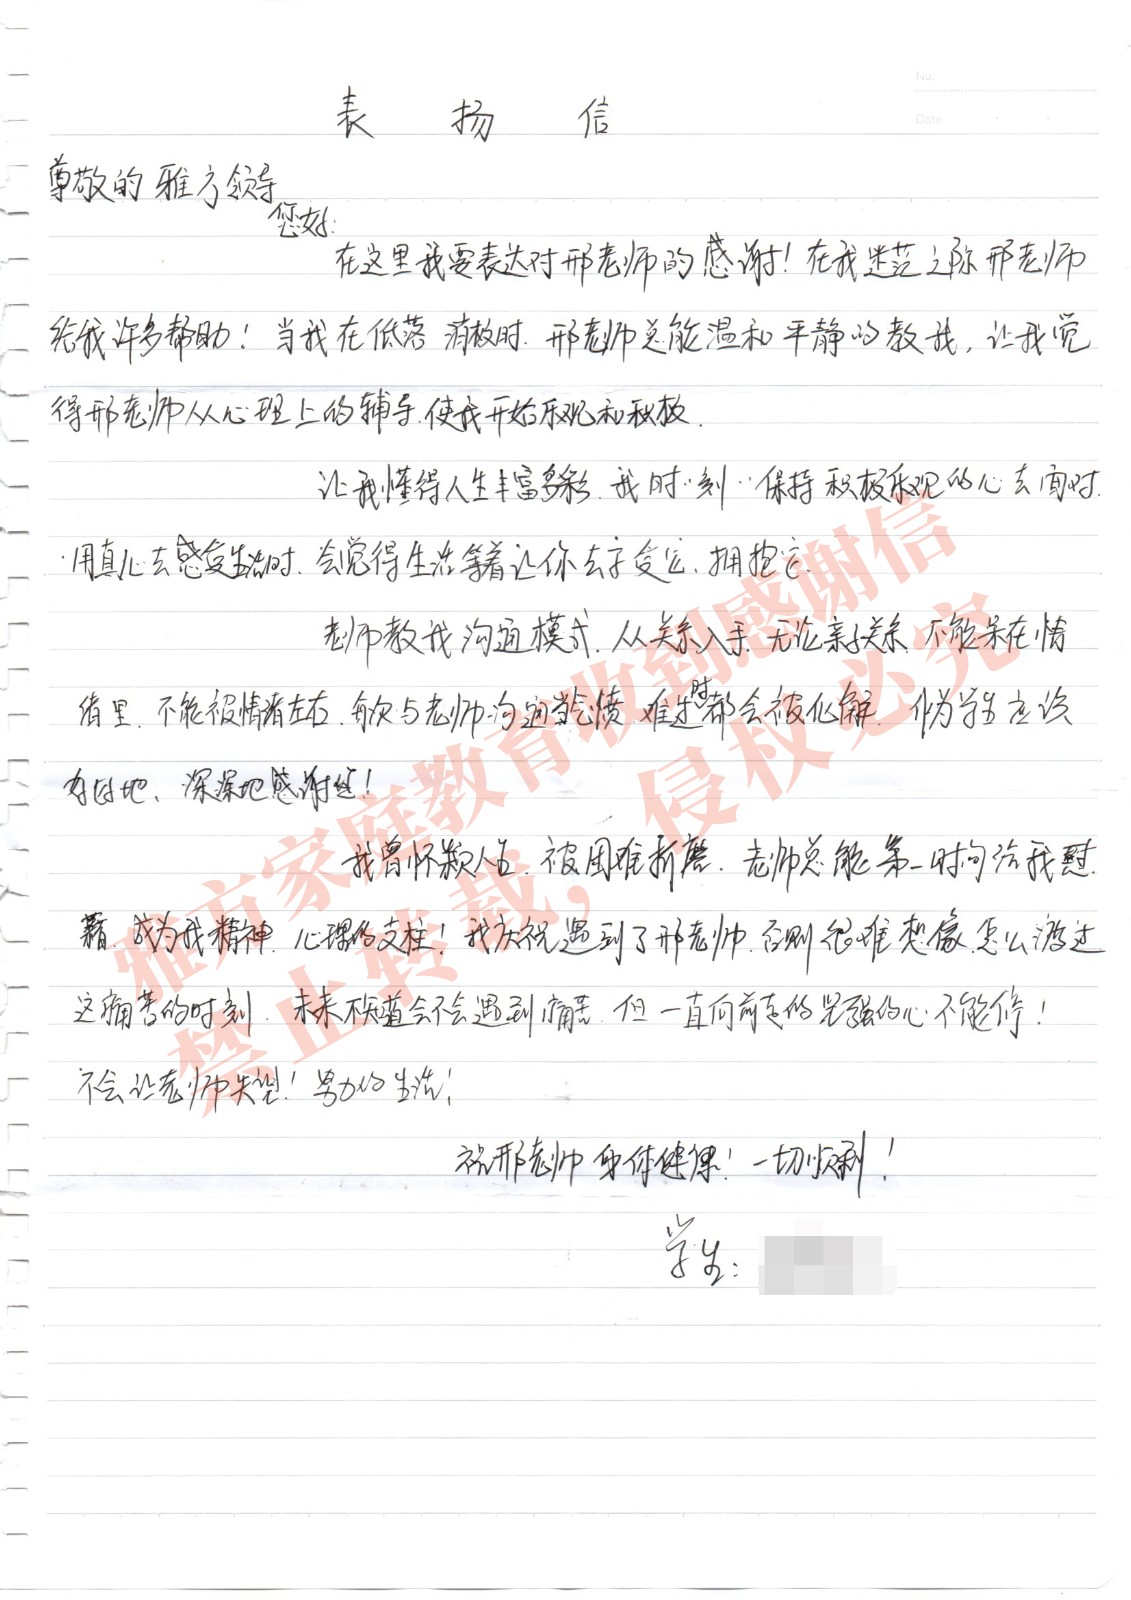 No.
Date
表 扬 信
尊敬的雅方领导
您好:
在这里我要表达对邢老师的感谢!在我迷茫之际邢老师
给我许多帮助!当我在低落 消极时.邢老师总能温和平静的教我,让我觉
得邢老师从心理上的辅导.使我开始乐观和积极.
让我懂得人生丰富多彩.我时刻 保持积极乐观的心去面对.
用真心去感受生活时.会觉得生活等着让你去享受它.拥抱它.
老师教我沟通模式.从关系入手.无论亲子关系.不能呆在情
绪里.不能被情绪左右.每次与老师沟通当 难过时都会被化解. 学生应该
深深地感谢您!
我曾怀疑人生.被困难折磨.老师总能第一时间给我慰
藉.成为我精神.心理的支柱!我庆祝遇到了邢老师.否则很难想像.怎么渡过
这痛苦的时刻.未来不知道会不会遇到痛苦.但一直向前走的坚强的心不能停!
不会让老师失望!努力的生活!
祝邢老师身体健康!一切顺利!
学生:
雅方家庭教育收到感谢信
禁止转载,侵权必究